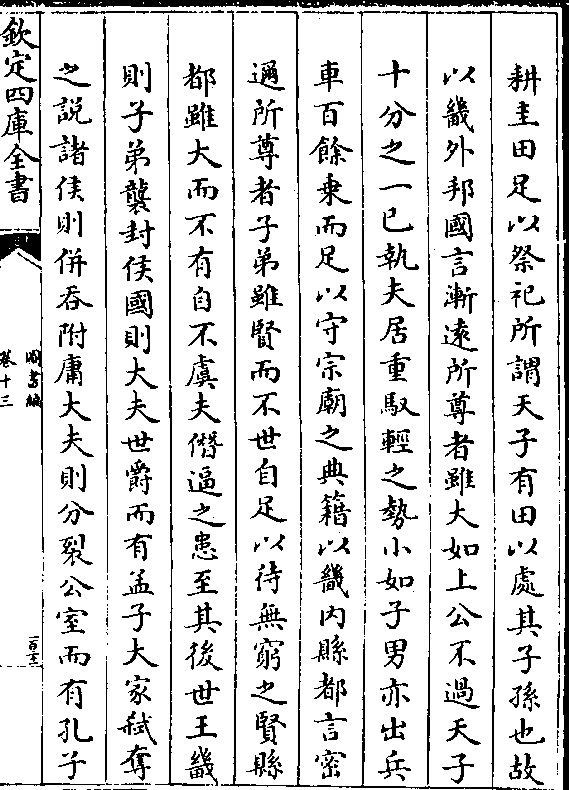 耕圭田足以祭祀所謂天子有田以處其子孫也故
以畿外邦國言漸逺所尊者雖大如上公不過天子
十分之一已執夫居重馭輕之勢小如子男亦出兵
車百餘乗而足以守宗廟之典籍以畿内縣都言密
邇所尊者子弟雖賢而不世自足以待無窮之賢縣
都雖大而不有自不虞夫僭逼之患至其後世王畿
則子弟襲封侯國則大夫世爵而有孟子大家弑奪
之説諸侯則併吞附庸大夫則分裂公室而有孔子
欽定四庫全書
圖書編
卷十三